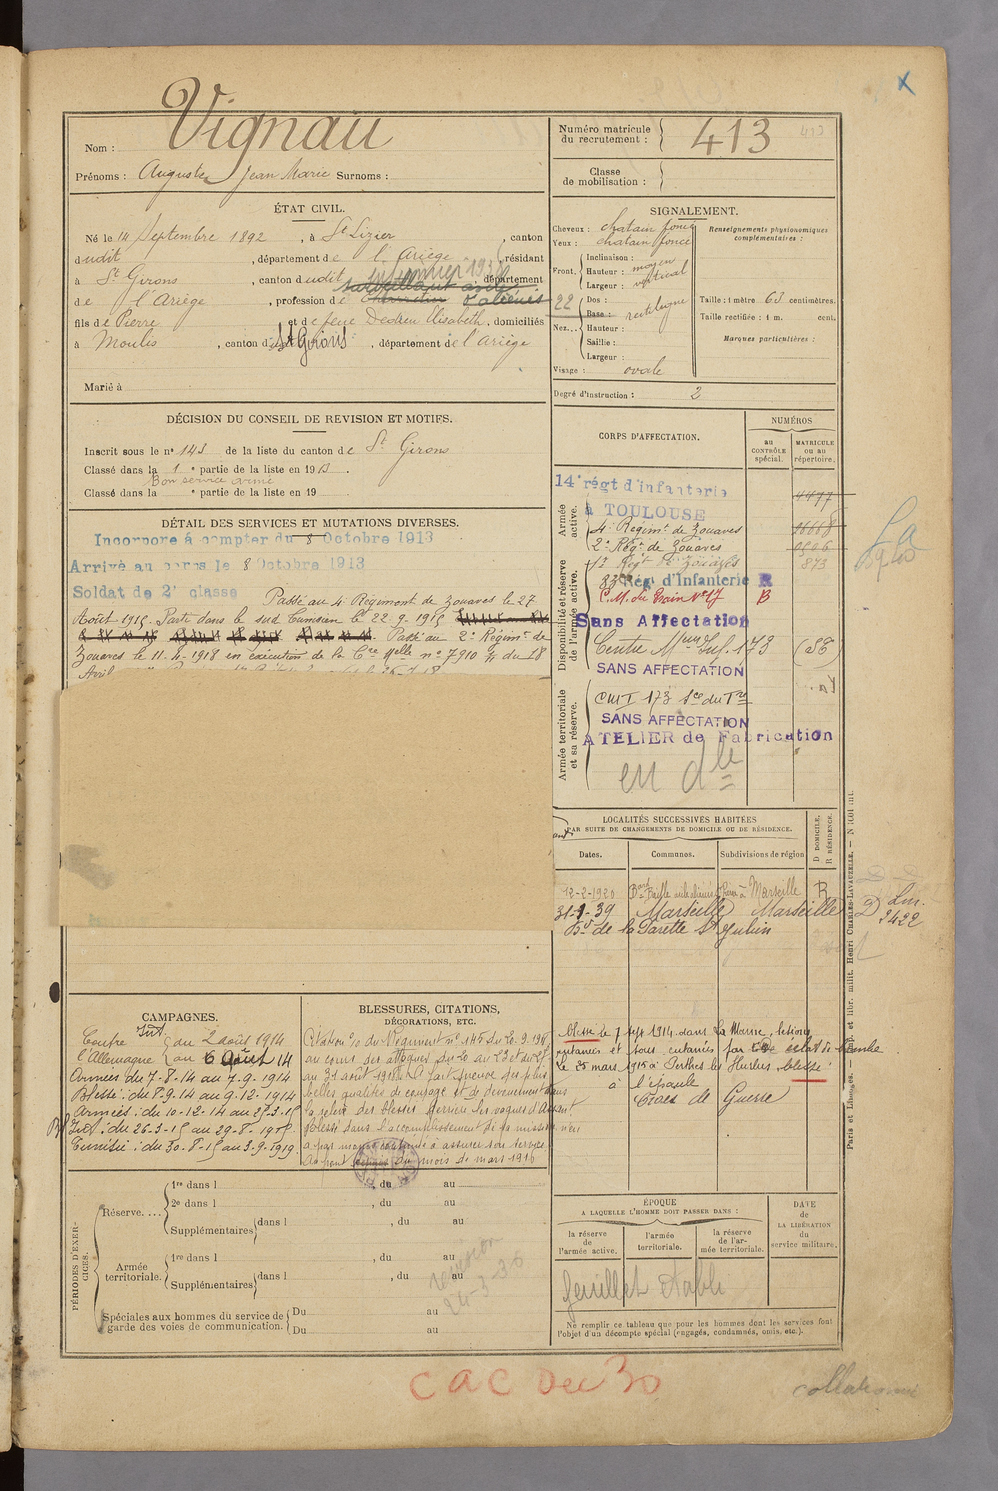 Nom : Vignau
Prénoms : Auguste Jean Marie Surnoms :
ÉTAT CIVIL.
Né le 14 Septembre 1892, à St Lizier, canton
dudit, département de l'Ariège, résidant
à St Girons, canton dudit, département
de l'Ariège, profession de surveillant asile d'aliénés
fils de Pierre et de feue Dedieu Elisabeth, domiciliés
à Moulis, canton de St Girons, département de l'Ariège
Marié à
DÉCISION DU CONSEIL DE REVISION ET MOTIFS.
Inscrit sous le n° 143 de la liste du canton de St Girons
Classé dans la 1e partie de la liste en 1913.
Bon service armé
Classé dans la e partie de la liste en 19
DÉTAIL DES SERVICES ET MUTATIONS DIVERSES.
Incorporé à compter du 8 Octobre 1913
Arrivé au corps le 8 Octobre 1913
Soldat de 2e classe Passé au 4e Régiment de Zouaves le 27
Août 1915. Parti dans le sud Tunisien le 22-9-1915
Passé au 2e Régimt de
Zouaves le 11-4-1918 en exécution de la Cre Melle n° 7910 du 18
Avril
CAMPAGNES.
Contre du 2 août 1914
l'Allemagne au 6 Août 14
Armées du 7-8-14 au 7-9-1914
Blessé : du 8-9-14 au 9-12-1914
Armées : du 10-12-14 au 25-3-15
Int. : du 26-3-15 au 29-8-1915
Tunisie : du 30-8-15 au 3-9-1919
BLESSURES, CITATIONS,
DÉCORATIONS, ETC.
Citation o/o du Régiment n° 145 du 20-9-1918
au cours des attaques du 20 au 23 et du 27
au 31 août 1918. A fait preuve des plus
belles qualités de courage et de dévouement dans
la relève des blessés derrière les vagues d'Assaut.
Blessé dans l'accomplissement de sa mission n'en
a pas moins continué à assurer son service
mois de mars 1916
PÉRIODES D'EXERCICES.
Réserve....
1re dans l , du au
2e dans l , du au
Supplémentaires dans l , du au
Armée territoriale.
1re dans l , du au
Supplémentaires dans l , du au
Spéciales aux hommes du service de garde des voies de communication.
Du au
Du au
24-3-30
Numéro matricule du recrutement : 413
Classe de mobilisation :
SIGNALEMENT.
Cheveux : chatain foncé
Yeux : chatain foncé
Front. Inclinaison :
Hauteur : moyen
Largeur : vertical
Nez... Dos :
Base : rectiligne
Hauteur :
Saillie :
Largeur :
Visage : ovale
Renseignements physionomiques complémentaires :
Taille : 1 mètre 63 centimètres.
Taille rectifiée : 1 m. cent.
Marques particulières :
Degré d'instruction : 2
CORPS D'AFFECTATION.
NUMÉROS
AU CONTRÔLE spécial.
MATRICULE OU AU répertoire.
Armée active.
14e régt d'infanterie
à TOULOUSE
4e Régimt de Zouaves
2e Régt de Zouaves
Régt de Zouaves 873
Disponibilité et réserve de l'armée active.
83e Régt d'Infanterie R
C.M. du Train N° 17 B
Sans Affectation
Centre Mon Inf. 173
SANS AFFECTATION
Armée territoriale et sa réserve.
CMI 173
SANS AFFECTATION
ATELIER de Fabrication
LOCALITÉS SUCCESSIVES HABITÉES
PAR SUITE DE CHANGEMENTS DE DOMICILE OU DE RÉSIDENCE.
Dates.
Communes.
Subdivisions de région
D DOMICILE, R RÉSIDENCE.
12-2-1920 Marseille R
31-1-39 Marseille Marseille D
Bd de la Parette St Julien
blessé le 7 sept 1914 dans La Marne, lésions
cutanées et sous cutanées par éclat de bombe
Le 25 mars 1915 à Perthes les Hurlus, blessé
à l'épaule
Croix de Guerre
ÉPOQUE
A LAQUELLE L'HOMME DOIT PASSER DANS :
la réserve de l'armée active.
l'armée territoriale.
la réserve de l'armée territoriale.
DATE de LA LIBÉRATION du service militaire.
feuillet établi
Ne remplir ce tableau que pour les hommes dont les services font
l'objet d'un décompte spécial (engagés, condamnés, omis, etc.).
Paris et Limoges. — Imp. et libr. milit. Henri CHARLES-LAVAUZELLE.
CAC Dec 30